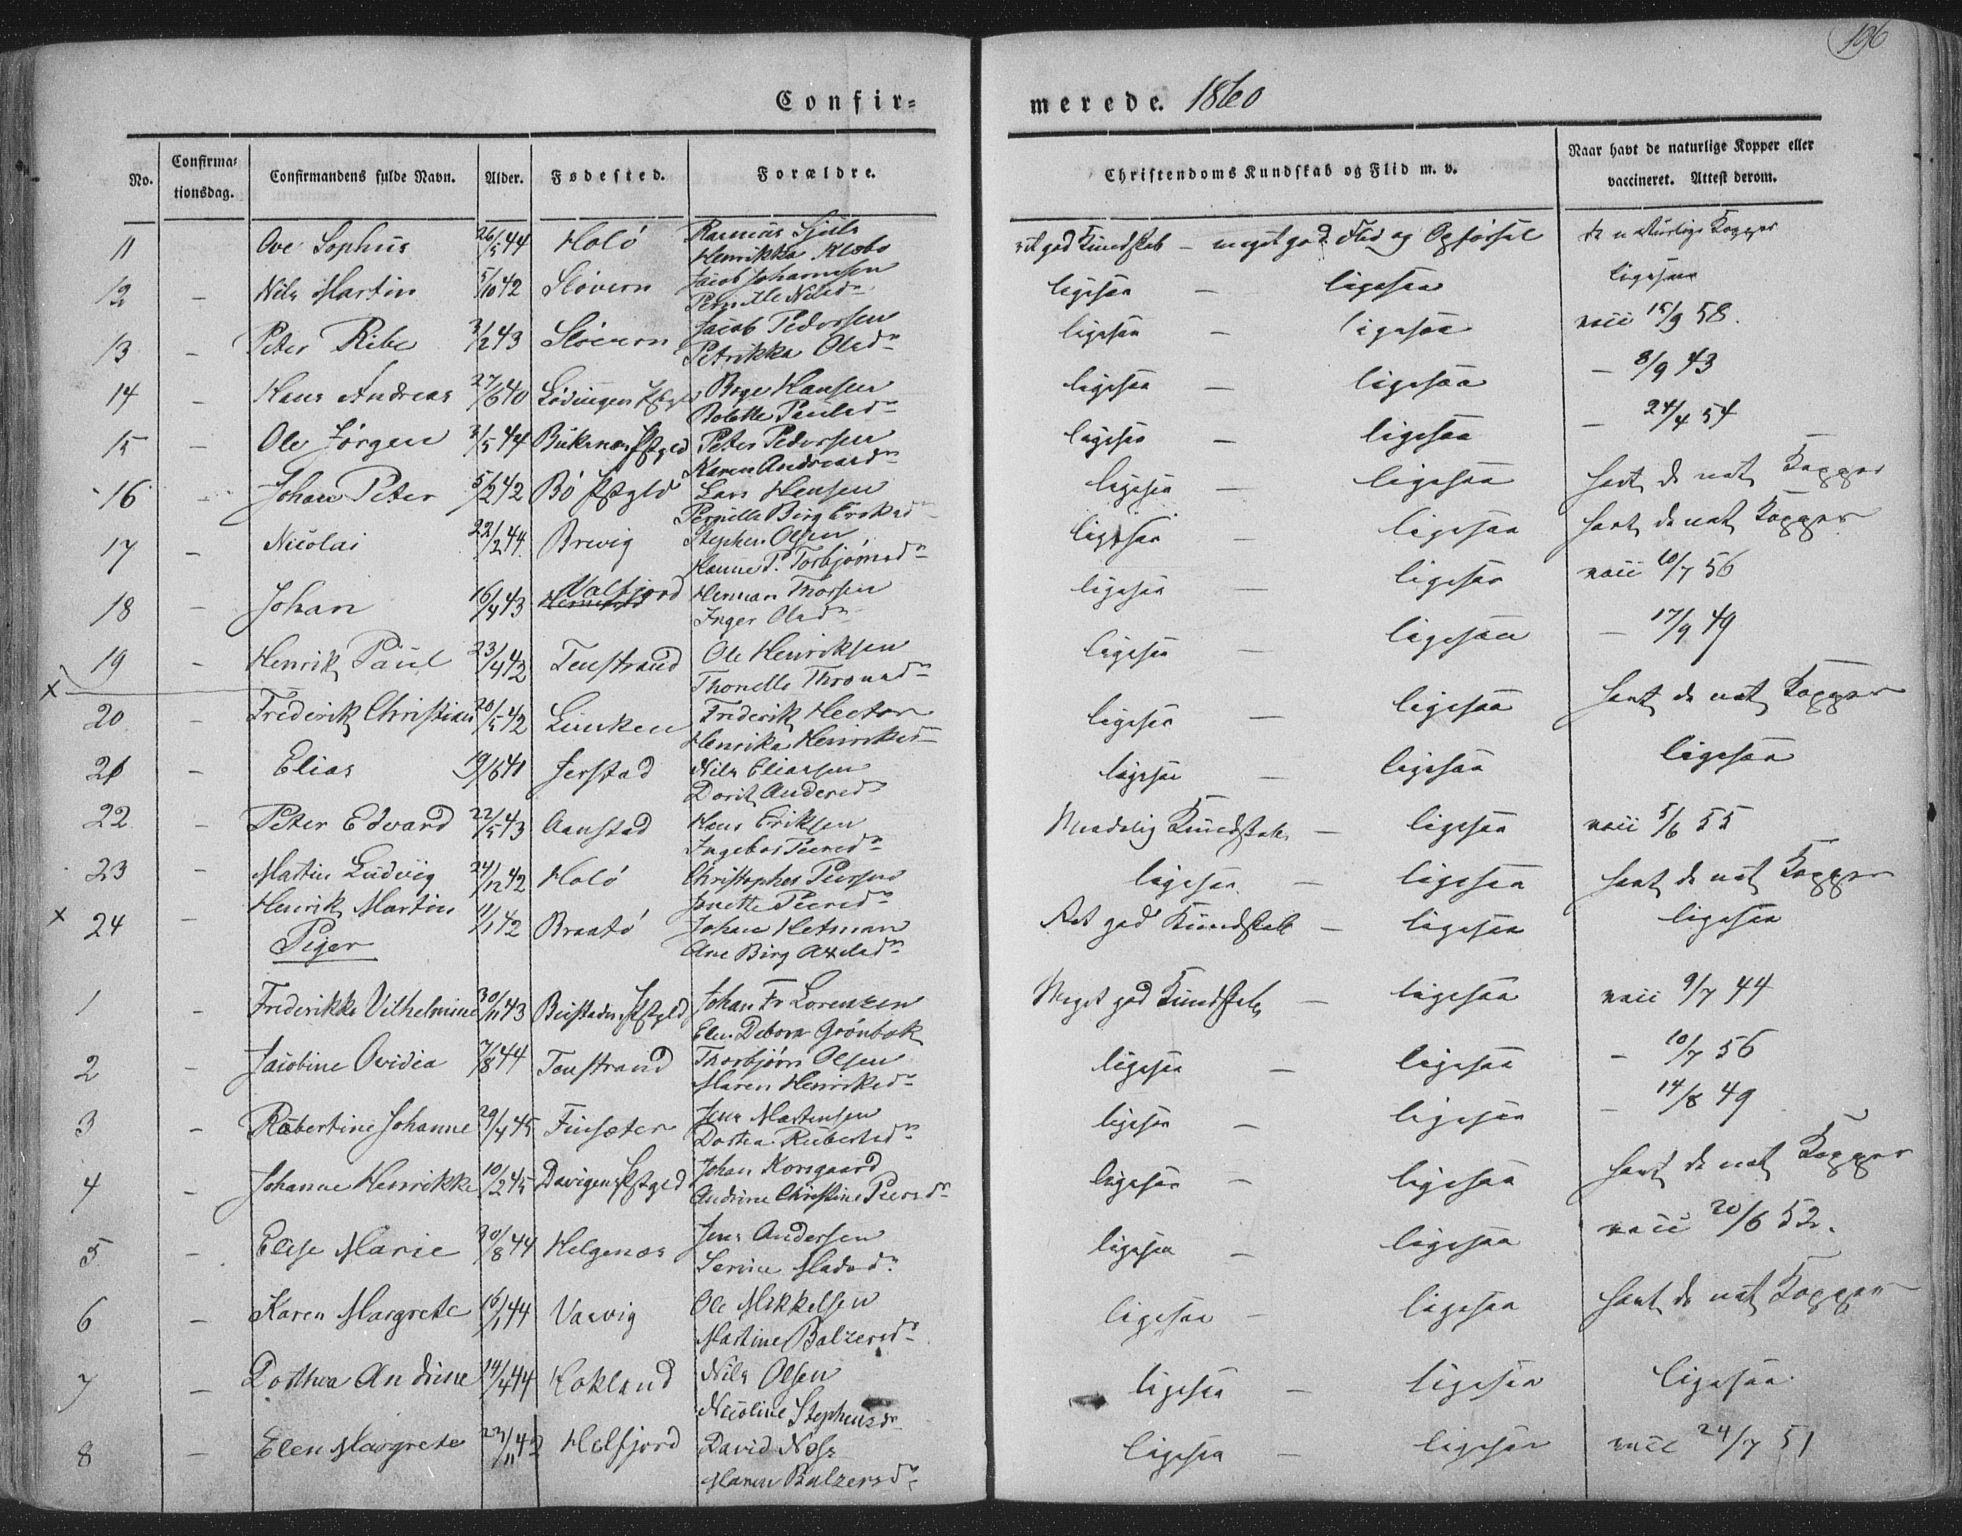 196
Confir-
merede. 1860
No.
Confirma-
tionsdag.
Confirmandens fulde Navn.
Alder.
Fødested.
Forældre.
Christendoms Kundskab og Flid m. v.
Naar havt de naturlige Kopper eller
vaccineret. Attest derom.
11 Ove Sophus 26/5 44 Holö Rasmus
Henrikka Klæbo
ret god Kundskab – meget god Flid og Opførsel de naturlige Kopper
12 – Nils Martin 5/10 42 Sløvern Jacob Johannesen
Pernille Nilsdr
ligesaa – ligesaa ligesaa
13 – Peter Ribe 3/2 43 Sløvern Jacob Pedersen
Petrikka Olsdr
ligesaa – ligesaa vacc 15/9 58.
14 – Hans Andreas 27/6 40 Lødingen Pstgld Boge Hansen
Bolette Paulsdr
ligesaa – ligesaa – 8/9 43
15 – Ole Jørgen 3/5 44 Buksnæs Pstgld Peter Pedersen
Karen Andreasdr
ligesaa – ligesaa – 24/4 54
16 – Johan Peter 5/2 42 Bö Pstgld Lars Hansen
Pernille Birg
ligesaa – ligesaa havt de nat Kopper
17 – Nicolai 22/2 44. Brevig Stephen Olsen
Hanne P. Torbjörnsdr
ligesaa – ligesaa havt de nat Kopper
18 – Johan 16/4 43 Valfjord Herman Thorsen
Inger Olsdr
ligesaa – ligesaa vacc 10/7 56
19 – Henrik Paul 23/4 42 Tenstrand Ole Henriksen
Thonette Thronsdr
ligesaa – ligesaa – 17/9 49
x 20 – Frederik Christian 20/5 42 Lunken Friderik Hector
Henrika Henriksdr
ligesaa – ligesaa havt de nat Kopper
21 – Elias 19/6 41 Jerstad Nils Eliassen
Dorit Andersdr
ligesaa – ligesaa ligesaa
22 – Peter Edvard 22/5 43 Aanstad Hans Eriksen
Ingebor Peersdr
Maadelig Kundskab – ligesaa vacc 5/6 55
23 – Martin Ludvig 24/12 42 Holö Christopher Peersen
Jonette Peersdr
ligesaa – ligesaa havt de nat Kopper
x 24 – Henrik Martin 11/1 42 Braatö Johan Hetman
Ane Birg Axelsdr
Ret god Kundskab – ligesaa ligesaa
Piger
1 – Frederikke Vilhelmine 30/11 43 Pstgld Johan Fr Lorenzen
Elen Debora Grönbek
Meget god Kundskab – ligesaa vacc 9/7 44
2 – Jacobine Ovidia 7/8 44 Tenstrand Thorbjørn Olsen
Maren Henriksdr
ligesaa – ligesaa – 10/7 56
3 – Robertine Johanne 29/4 45 Finsæter Jens Martensen
Dorthea Rubertsdr
ligesaa – ligesaa – 14/8 49
4 – Johanne Henrikke 10/2 45 Pstgld Johan Korsgaard
Andrine Christine Peersdr
ligesaa – ligesaa havt de nat Kopper
5 – Elise Marie 30/8 44 Helgenæs Jens Andersen
Serine Madsdr
ligesaa – ligesaa vacc 20/6 52.
6 – Karen Margrete 16/1 44 Varvig Ole Mikkelsen
Martine Balzersdr
ligesaa – ligesaa havt de nat Kopper
7 – Dorthea Andrine 14/4 44 Kokland Nils Olsen
Nicoline Stephensdr
ligesaa – ligesaa ligesaa
8 – Elen Margrete 22/11 42 Helfjord David Noss
Maren Balzersdr
ligesaa – ligesaa vacc 24/7 51